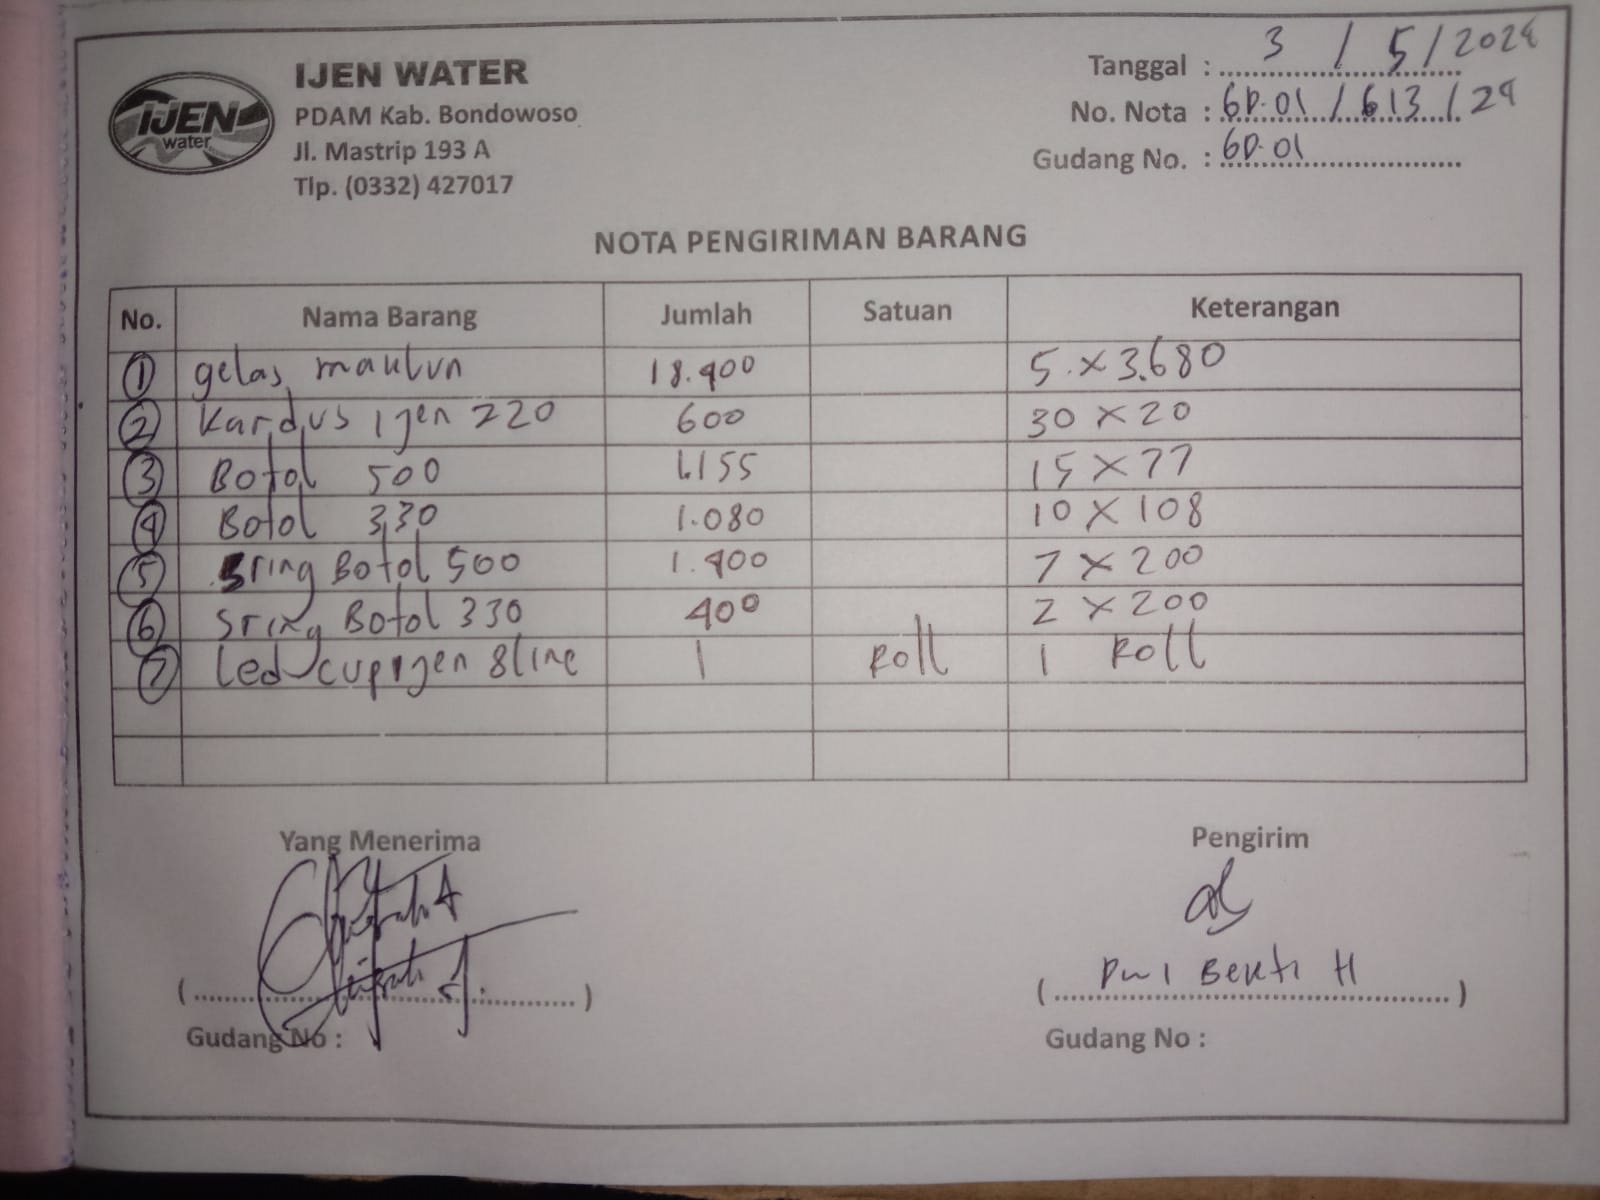 IJEN water
IJEN WATER
PDAM Kab. Bondowoso
Jl. Mastrip 193 A
Tlp. (0332) 427017
Tanggal : 3 / 5 / 2024
No. Nota : GD.01 / 613 / 24
Gudang No. : GD.01
NOTA PENGIRIMAN BARANG
No. Nama Barang Jumlah Satuan Keterangan
1 gelas maulun 18.400 5 x 3.680
2 Kardus ijen 220 600 30 x 20
3 Botol 500 1.155 15 x 77
4 Botol 330 1.080 10 x 108
5 Sring Botol 500 1.400 7 x 200
6 Sring Botol 330 400 2 x 200
7 Led cup ijen 8 line 1 Roll 1 Roll
Yang Menerima
Pengirim
(........................................)
( Dwi Bekti H )
Gudang No :
Gudang No :